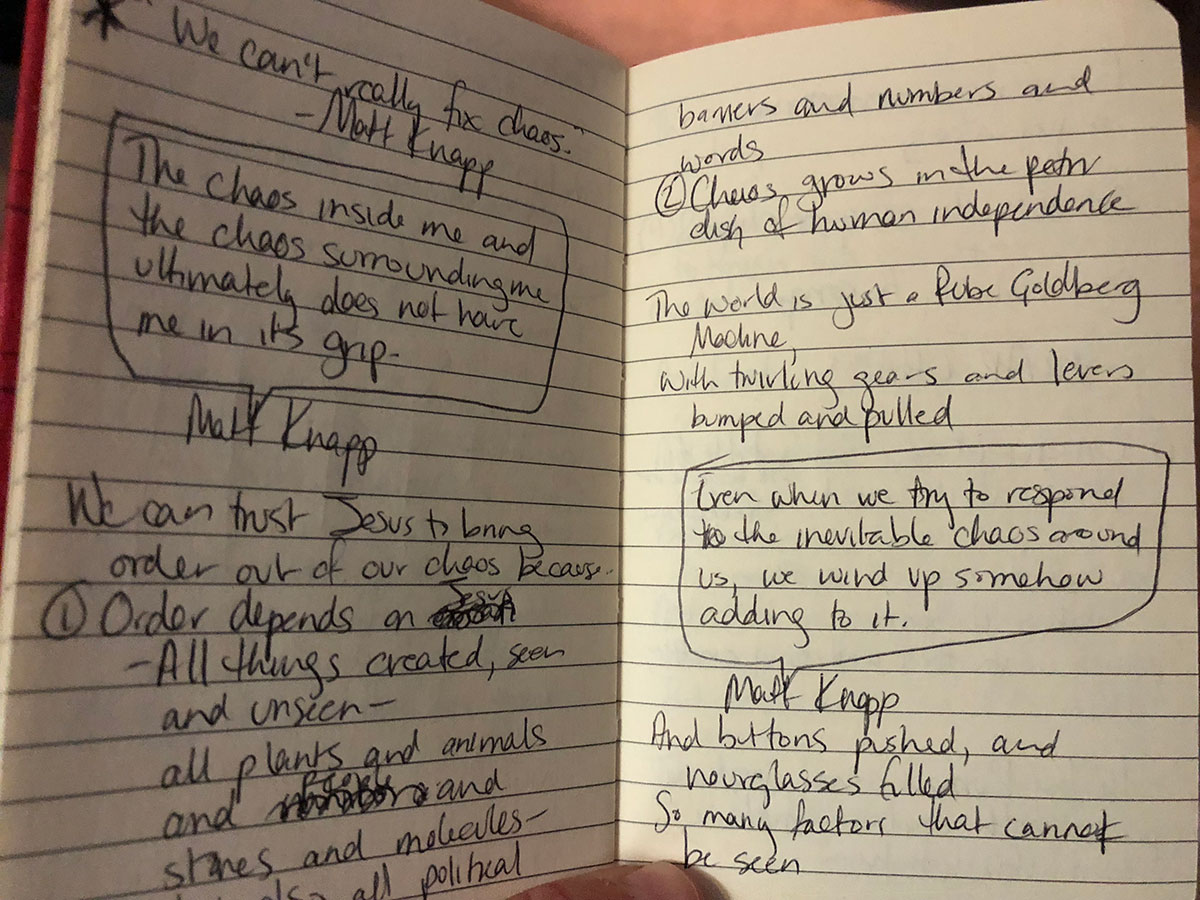 * "We can't really fix chaos."
- Matt Knapp
The chaos inside me and
the chaos surrounding me
ultimately does not have
me in its grip.
Matt Knapp
We can trust Jesus to bring
order out of our chaos because.
① Order depends on Jesus
- All things created, seen
and unseen -
all plants and animals
and people and
stones and molecules -
also all political
barriers and numbers and
words
② Chaos grows in the petri
dish of human independence
The world is just a Rube Goldberg
Machine,
With twirling gears and levers
bumped and pulled
Even when we try to respond
to the inevitable chaos around
us, we wind up somehow
adding to it.
Matt Knapp
And buttons pushed, and
hourglasses filled
So many factors that cannot
be seen